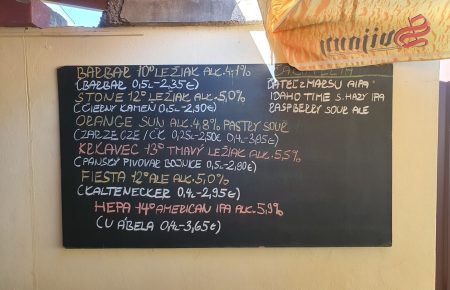 BARBAR 10° LEŽIAK ALC. 4,1%
(BARBAR 0,5L-2,35€)
STONE 12° LEŽIAK ALC. 5,0%
(ČIERNY KAMEŇ 0,5L-2,90€)
ORANGE SUN ALC. 4,8% PASTRY SOUR
(ZARZECZE/ČK 0,25L-2,50€ 0,4L-3,85€)
KRKAVEC 13° TMAVÝ LEŽIAK ALC. 5,5%
(PANSKÝ PIVOVAR BOJNICE 0,5L-2,80€)
FIESTA 12° ALE ALC. 5,0%
(KALTENECKER 0,4L-2,95€)
HEPA 14° AMERICAN IPA ALC. 5,9%
(U ÁBELA 0,4L-3,65€)
DATEL Z MARSU AIPA
IDAHO TIME S. HAZY IPA
RASPBERRY SOUR ALE